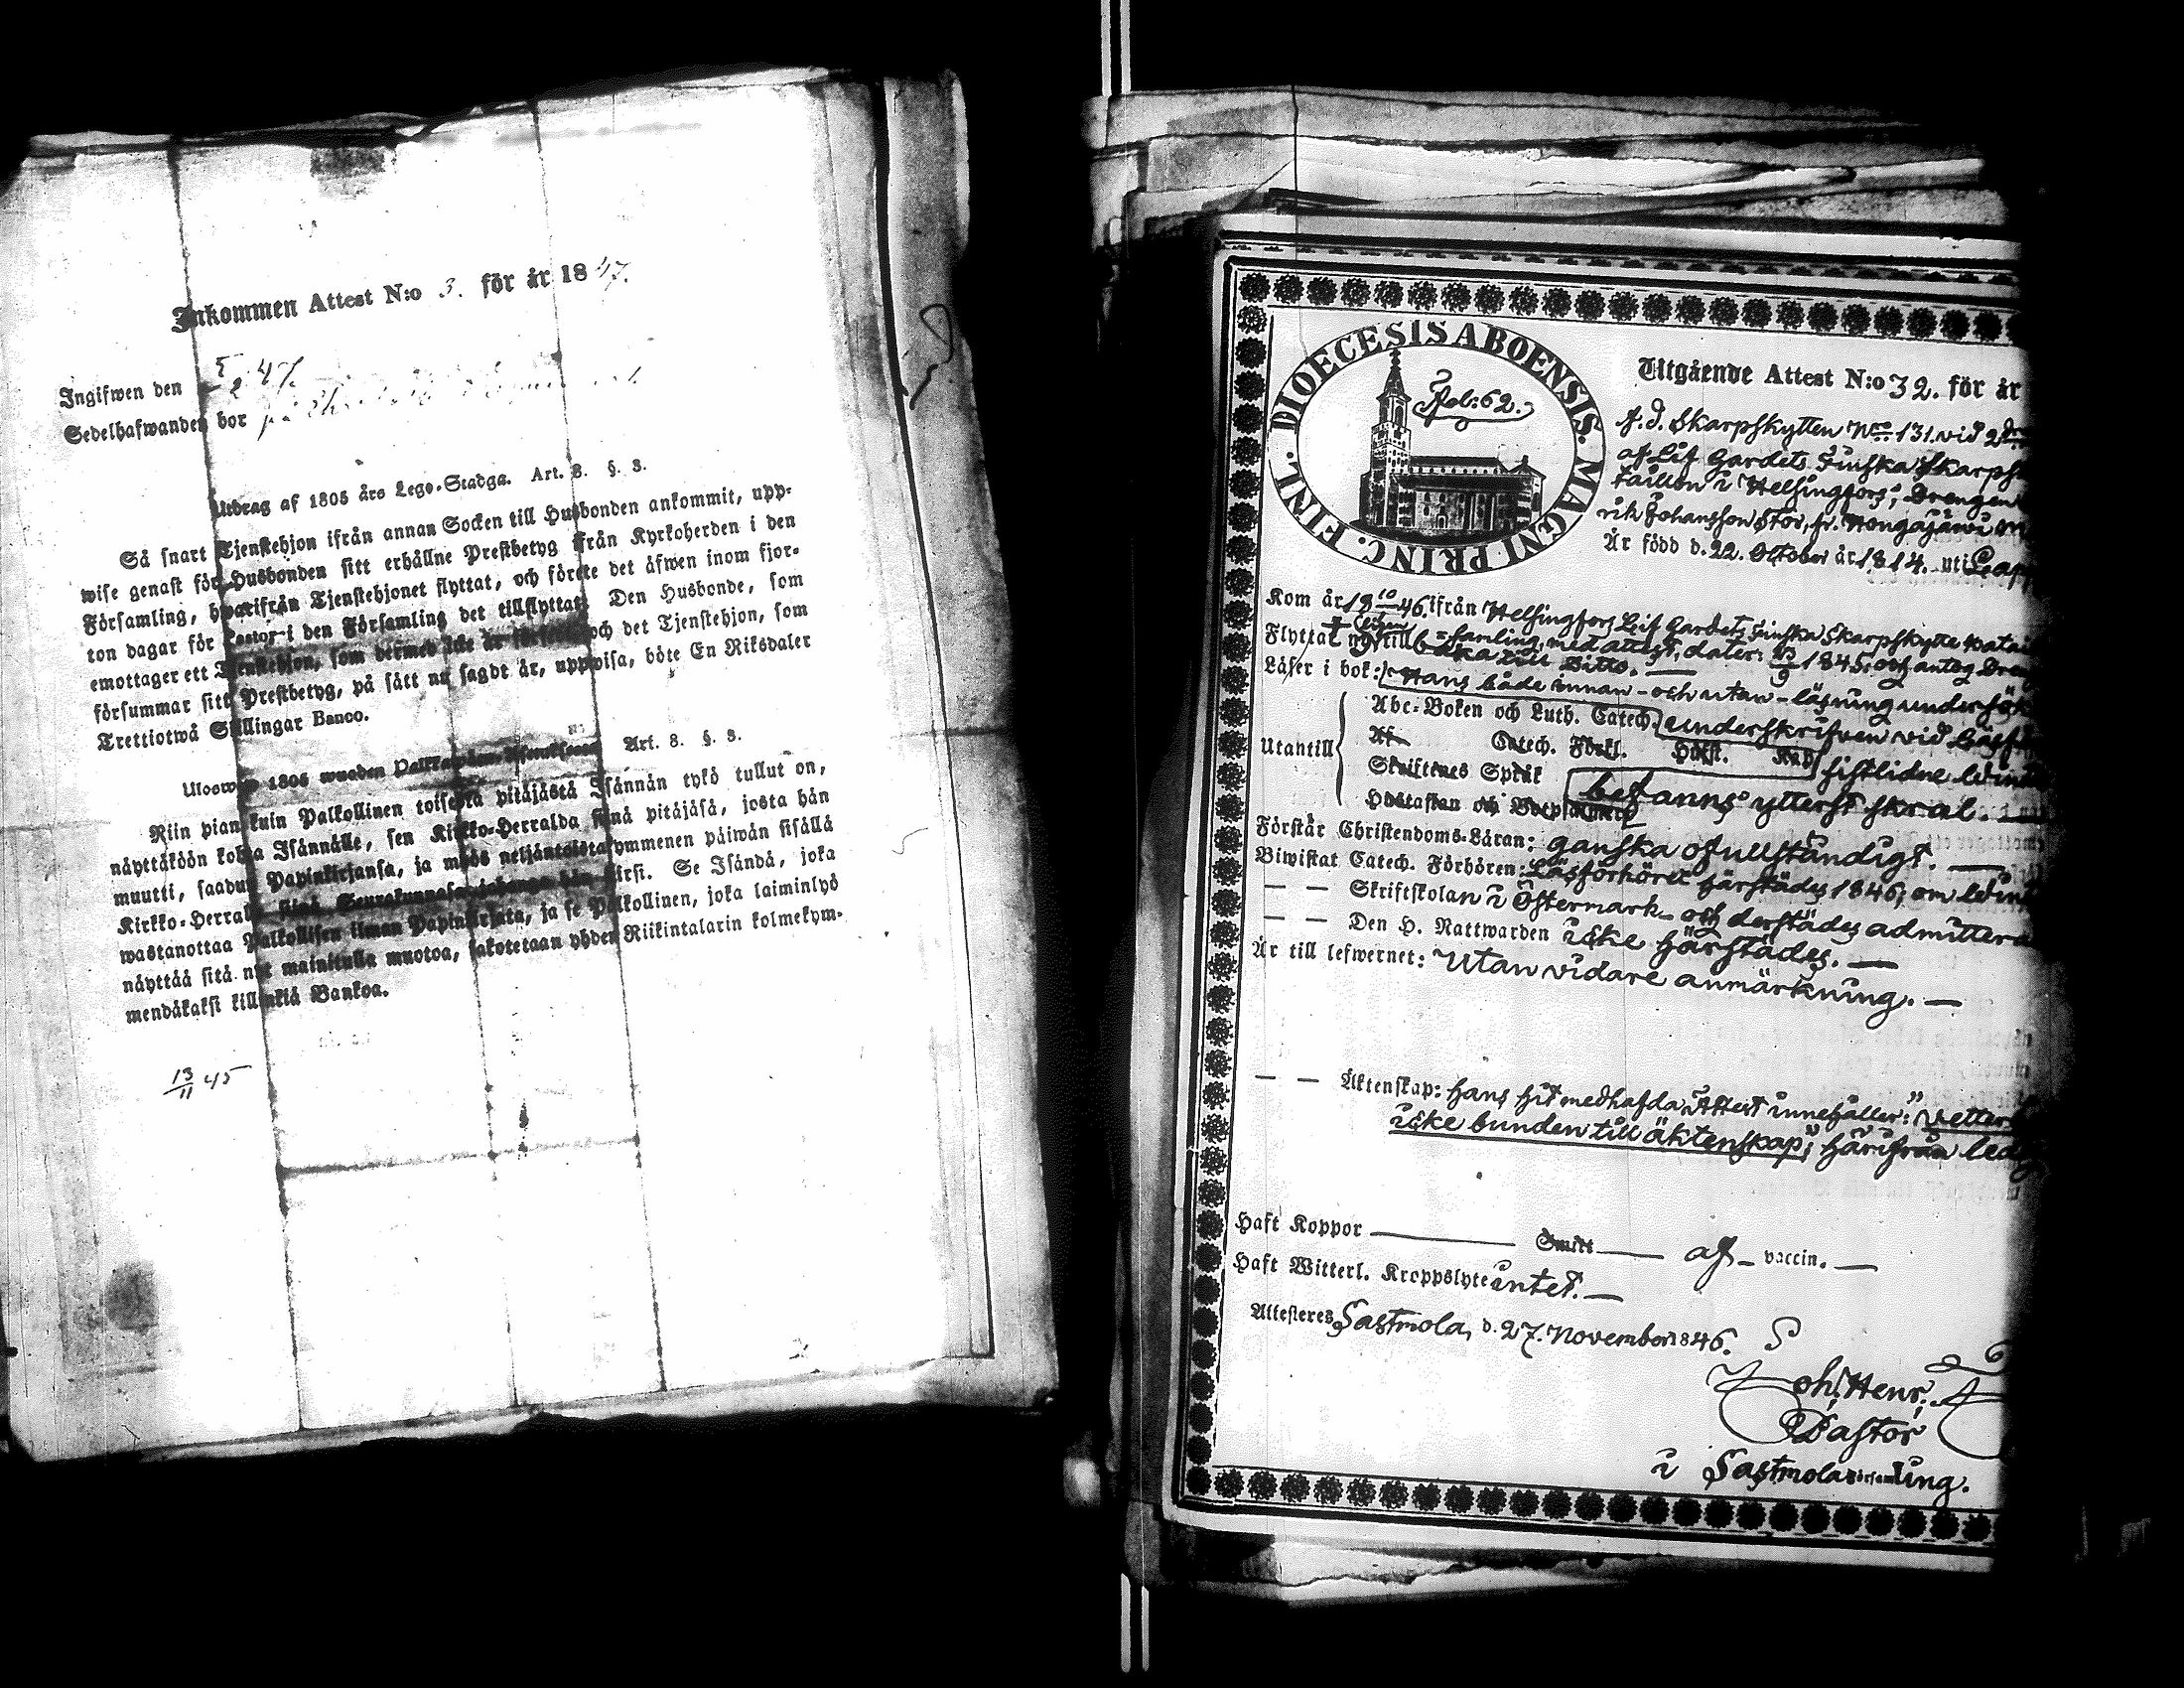 Inkommen Attest N:o 3. för år 1847.
Ingifwen den 5/2 47.
Sedelhafwanden bor på
Utdrag af 1805 års Lego-Stadga. Art. 8. §. 3.
Så snart Tjenstehjon ifrån annan Socken till Husbonden ankommit, upp-
wise genast för Husbonden sitt erhållne Prestbetyg från Kyrkoherden i den
Församling, hwarifrån Tjenstehjonet flyttat, och förete det äfwen inom fjor-
ton dagar för Pastor i den Församling det tillflyttat. Den Husbonde, som
emottager ett Tjenstehjon, som dermed icke är försedt och det Tjenstehjon, som
försummar sitt Prestbetyg, på sätt nu sagdt är, uppwisa, böte En Riksdaler
Trettiotwå Skillingar Banco.
Uloswedo 1805 wuoden Art. 8. §. 3.
Niin pian kuin Palkollinen toisesta pitäjästä Isännän tykö tullut on,
näyttäköön kohta Isännälle, sen Kirkko-Herralda siinä pitäjäsä, josta hän
muutti, saadun Papinkirjansa, ja myös neljäntoistakymmenen päiwän sisällä
Kirkko-Herralle siinä Seurakunnasa, johonga hän siirsi. Se Isändä, joka
wastanottaa Palkollisen ilman Papinkirjata, ja se Palkollinen, joka laiminlyö
näyttää sitä nyt mainitulla muotoa, sakotetaan yhden Riikintalarin kolmekym-
mendäkaksi killinkiä Bankoa.
13/11 45
DIOECESIS ABOENSIS. MAGNI PRINC. FINL.
Fol: 62.
Utgående Attest N:o 32. för år
f. d. Skarpskytten Nro 131. vid 2dra
af Lif Gardets Finska Skarps
taillon i Helsingfors; Drengen
rik Johansson Stor, fr. Hongajärvi
Är född d. 22. Oktober år 1814. uti Lapp
Kom år 18 10/ 46. ifrån Helsingfors Lif Gardets Finska Skarpskytte Batai
Flyttat nu till församling, med attest, dater: 13/9 1845. och antog Dren
baka till Ditto. —
Läser i bok: Hans både innan- och utan-läsning undersökt
Utantill Abc-Boken och Luth. Catech. underskrifven vid Läsför
Af Catech. Förkl. Hufst. Råd sistlidne Winter
Skriftenes Språk befanns ytterst skral. —
Hustaflan och Botpsalmerg
Förstår Christendoms-Läran: ganska ofullständigt. —
Biwistat Catech. Förhören: Läsförhöret härstädes 1846, om Wint
— — Skriftskolan i Östermark och derstädes admittera
— — Den H. Nattwarden icke härstädes. —
Är till lefwernet: Utan vidare anmärkning. —
— — Äktenskap: Hans hit medhafda Attest innehåller: "Vetter
icke bunden till äktenskap"; härifrån ledig
Haft Koppor — Smitt — af — vaccin. —
Haft Witterl. Kroppslyte intet. —
Attesteres Sastmola, d. 27. November 1846.
Joh. Henr.
Pastor
i Sastmola församling.